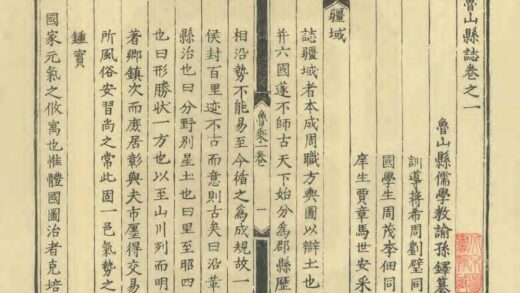 魯山縣誌卷之一
魯山縣儒學教諭孫鐸纂
訓導蔣希周劉璧同
國學生周茂李佃同
庠生賈章馬世安采
疆域
誌疆域者本成周職方輿圖以辯土也
并六國遂不師古天下始分為郡縣歷
相沿勢不能易至今循之為成規故一
魯乘一卷
一
侯封百里迹不古而意則古矣曰沿革
縣治也曰分野別星土也曰里至昭四
也曰形勝狀一方也以至山川列而明
著鄉鎮次而廐居彰與夫市廛得交易
所風俗安習尚之常此固一邑氣勢之
鍾實
國家元氣之攸寓也惟體國圖治者克培